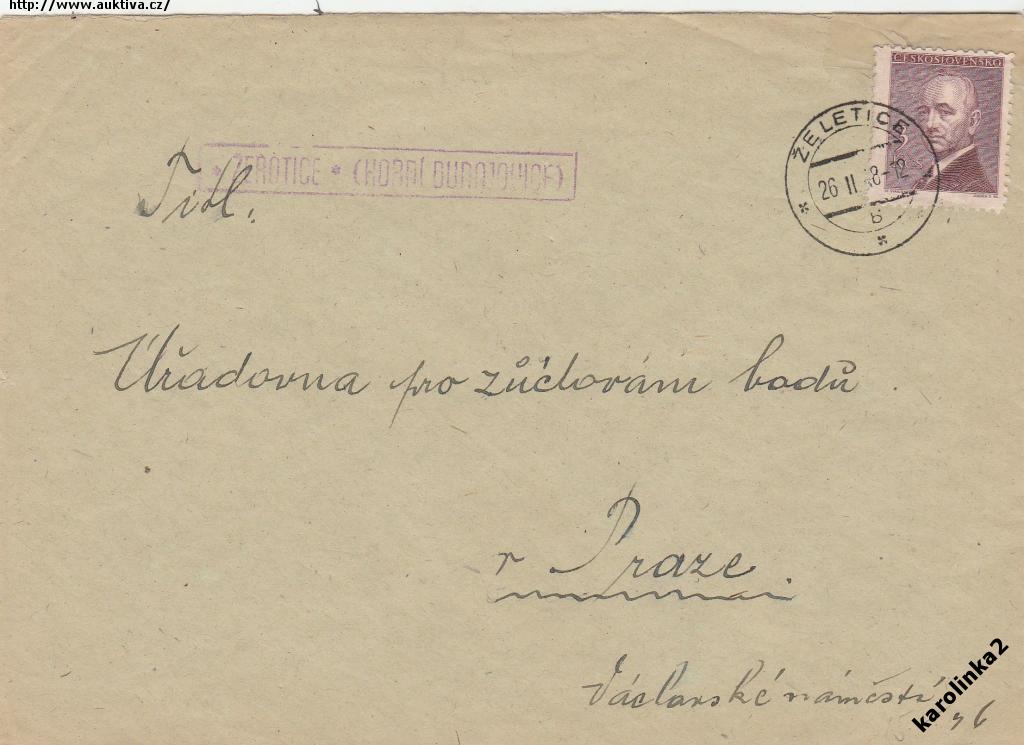 http://www.auktiva.cz/
ČESKOSLOVENSKO
ŽELETICE
26 II 48-12
B
* ŽEROTICE * (HORNÍ DUNAJOVICE)
Titl.
Úřadovna pro zúčtování bodů
v Praze.
Václavské náměstí
karolinka2